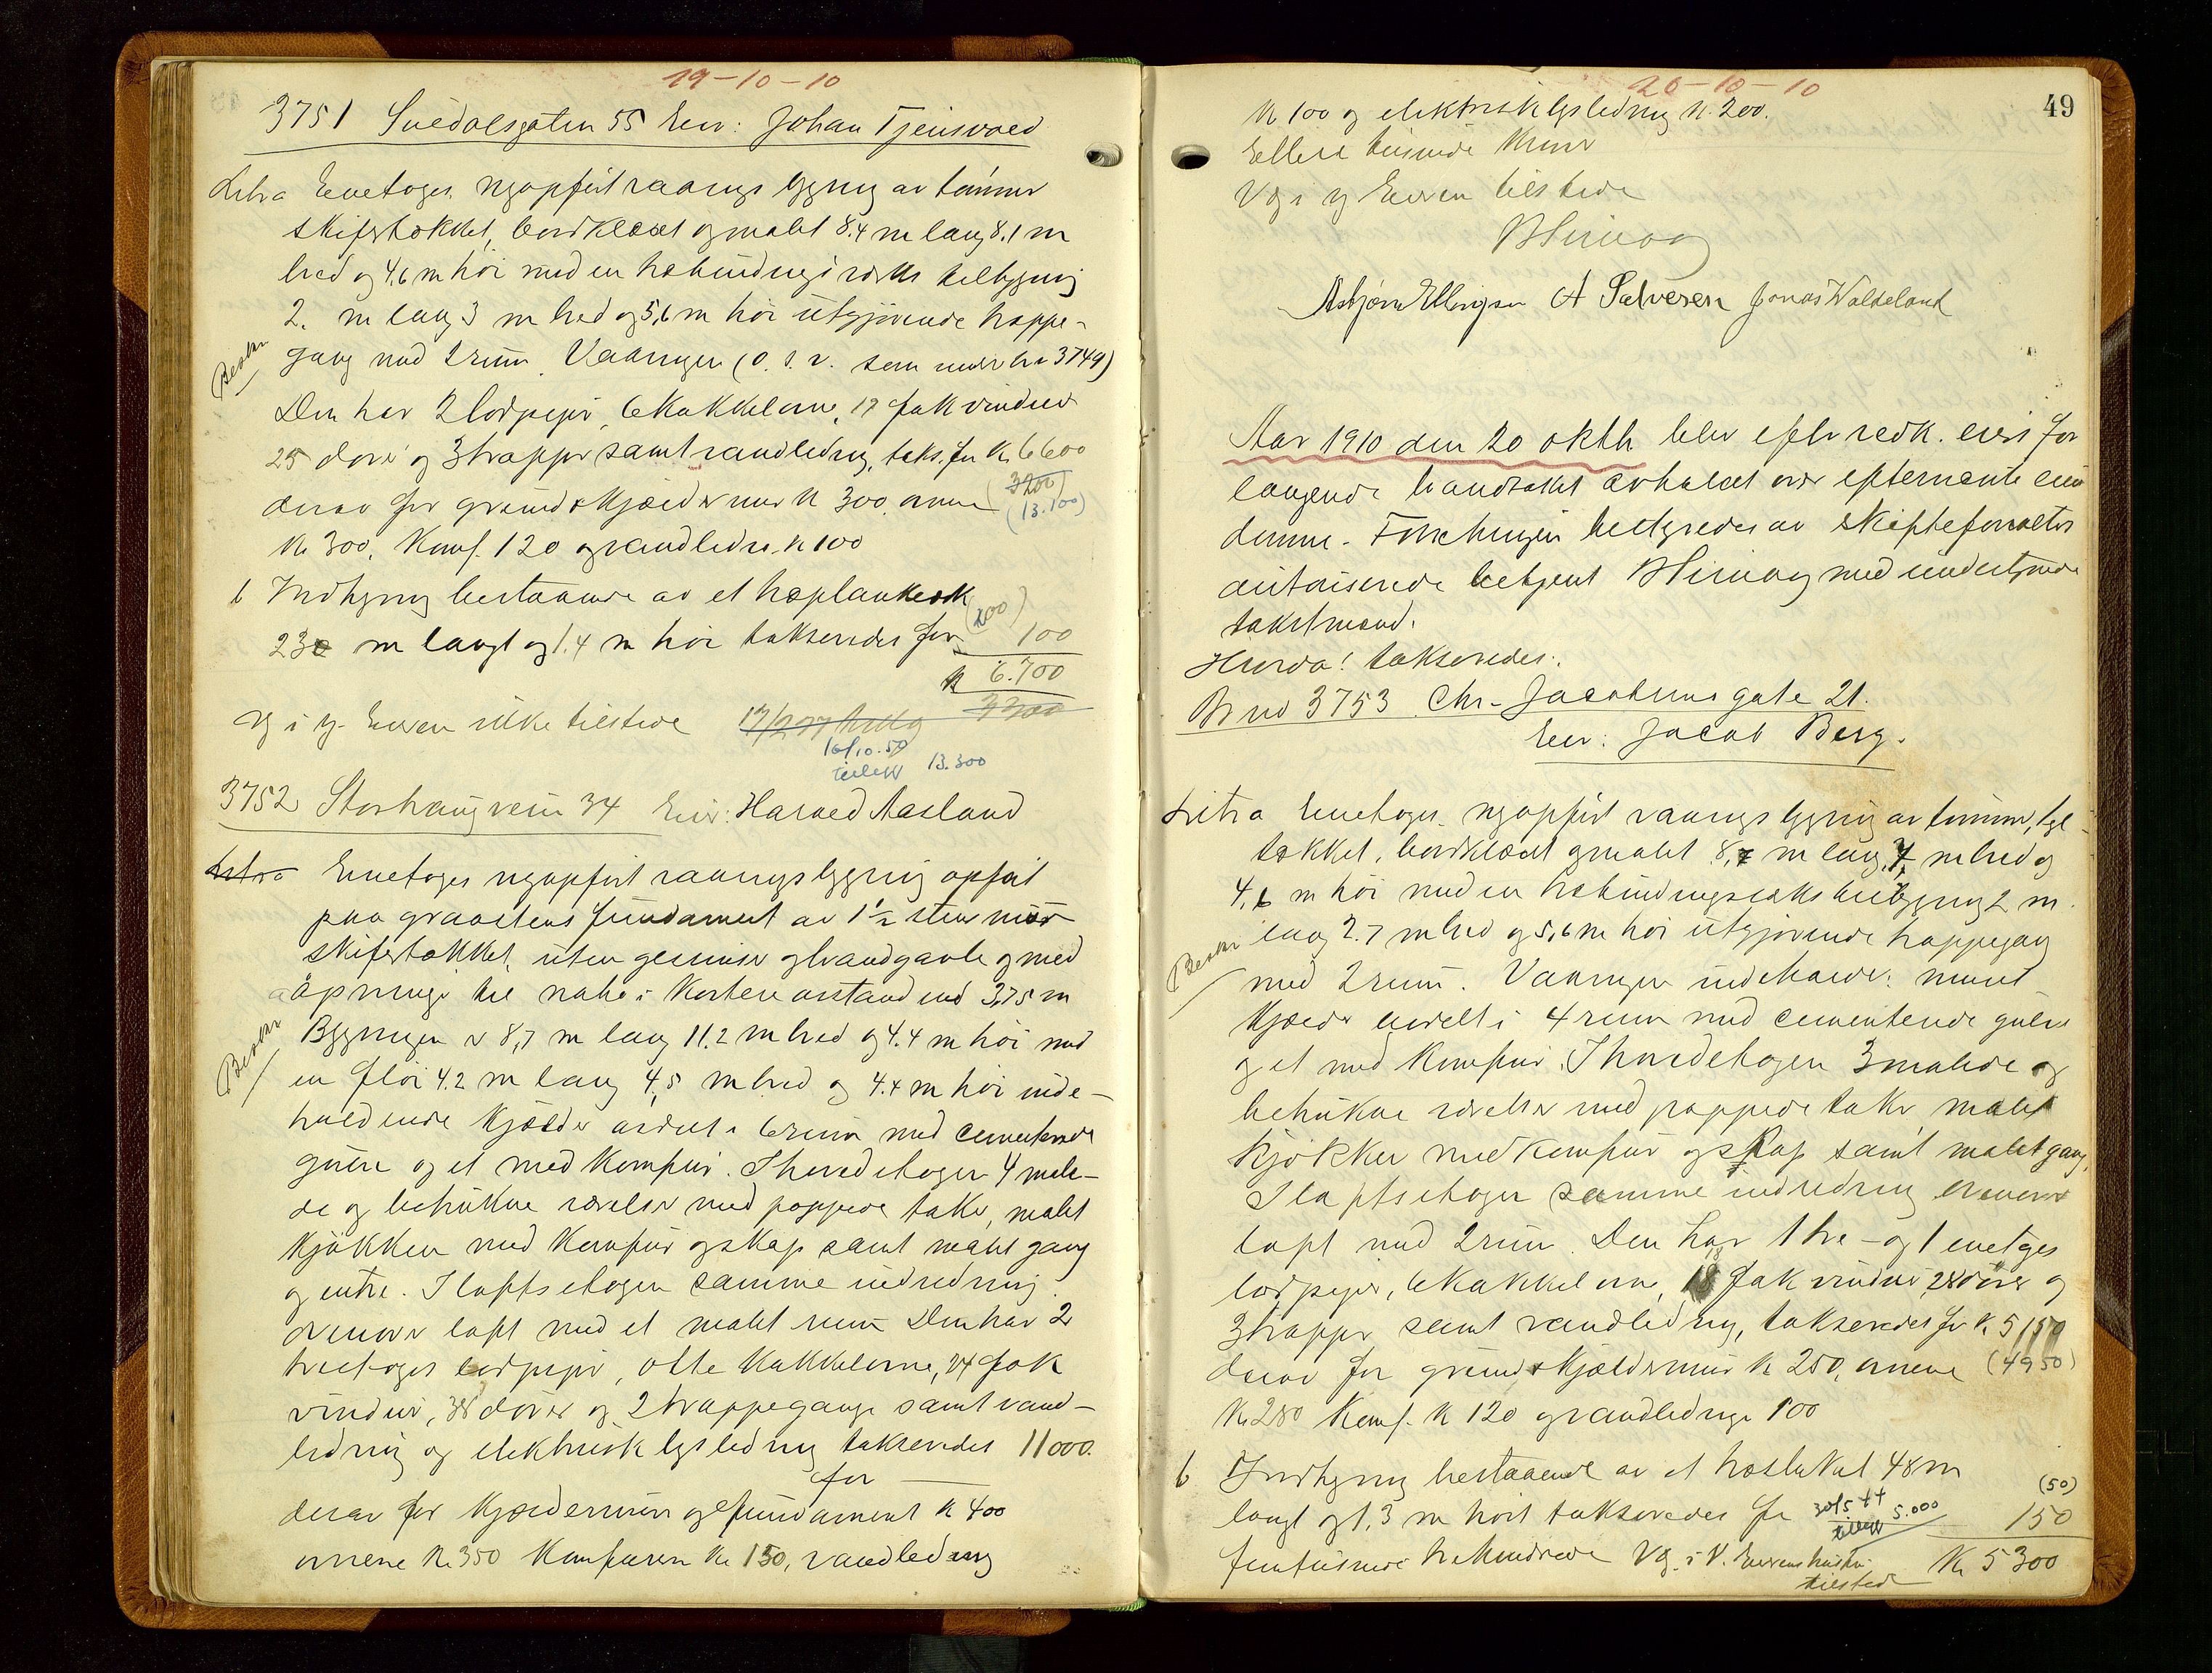 19-10-10
3751 Svedalsgaten 55 Eier: Johan Tjensvold
Litra Enetages nyopført vaanings bygning av tømmer
skifertækket, bordklædt og malet 8.4 m lang 8.1 m
bred og 4,6 m høi med en træbindingsværks tilbygning
2. m lang 3 m bred og 5,6 m høi utgjørende trappe-
gang med 2 rum. Vaaningen (o. s. v. som under br 3749)
Beskr
Den har 2 lodpiper, 6 kakkelovne, 17 fak vinduer
25 døre og 3 trapper samt vandledning, taks. for Kr 6600
derav for grund & kjældermur K 300, ovnene (3200)
(13.100)
Kr 300, Komf. 120 og vandledn. K 100
b Indhegning bestaaende av et træplankeværk
(200)
23 m langt og 1.4 m høi takseredes for 100
K 6.700
3300
Vg i V. Eieren ikke tilstede
16/10.50
tillegg 13.300
3752 Storhaugveien 34 Eier: Harald Aasland
Litra Enetages nyopført vaaningsbygning opført
paa graastens fundament av 1 1/2 stens mur
skifertækket, uten gesimser og brandgavle og med
aapninger til nabo i kortere avstand end 3,75 m
Beskr
Bygningen er 8,7 m lang 11.2 m bred og 4.4 m høi med
en fløi 4.2 m lang 4,5 m bred og 4.4 m høi inde-
holdende kjælder avdelt i 6 rum med cementerede
gulve og et med komfur. I hovedetagen 4 male-
de og betrukne værelser med pappede taker, malet
kjøkken med komfur og skap samt malet gang
og entre. I loftsetagen samme indredning
derover loft med et malet rum Den har 2
treetages lodpiper, otte kakkelovne, 24 fak
vinduer, 38 dører og 2 trappegange samt vand-
ledning og elektrisk lysledning takseredes 11000.
for
derav for kjældermur og fundament K 400
ovnene Kr 350 Komfuren Kr 150, vandledning
20-10-10
49
K 100 og elektrisk lysledning K. 200.
Elleve tusinde Kroner
Vg i V Eieren tilstede
Asbjørn Ellingsen A Salvesen Jonas Waldeland
Aar 1910 den 20 oktb. blev efter redk. eiers for
langende brandtakst avholdt over efternævnte eien
domme. Forretningen bestyredes av skifteforvalters
autoriserede betjent med undertegnede
takstmænd.
Hvorda! takseredes:
Br no 3753 Chr. Jacobsens gate 21.
Eier: Jacob Berg.
Litra Enetages nyopført vaanings bygning av tømmer, tegl-
tækket, bordklædt og malet 8,7 m lang, 7, m bred og
4,6 m høi med en træbindingsværks tilbygning 2 m
Beskr
lang 2.7 m bred og 5,6 m høi utgjørende trappegang
med 2 rum. Vaaningen indeholder: muret
kjælder avdelt i 4 rum med cementerede gulve
og et med komfur. I hovedetagen 3 malede og
betrukne værelser med pappede taker, malet
kjøkken med komfur og skap samt malet gang,
I loftsetagen samme indredning derover
loft med 2 rum. Den har 1 tre- og 1 enetages
lodpiper, 6 kakkelovne, 18 fak vinduer, 28 dører og
3 trapper samt vandledning, takseredes for K 5150
derav for grund & kjældermur K 250, ovnene (4950)
Kr 280 Komf. K 120 og vandledninge 100
b Indhegning bestaaende av et træstakit 48 m
(50)
langt og 1,3 m høit takseredes for 150
30/5 44
tillegg 5.000
femtusinde trehundrede Vg. i V. Eierens hustru
tilstede
Kr 5300